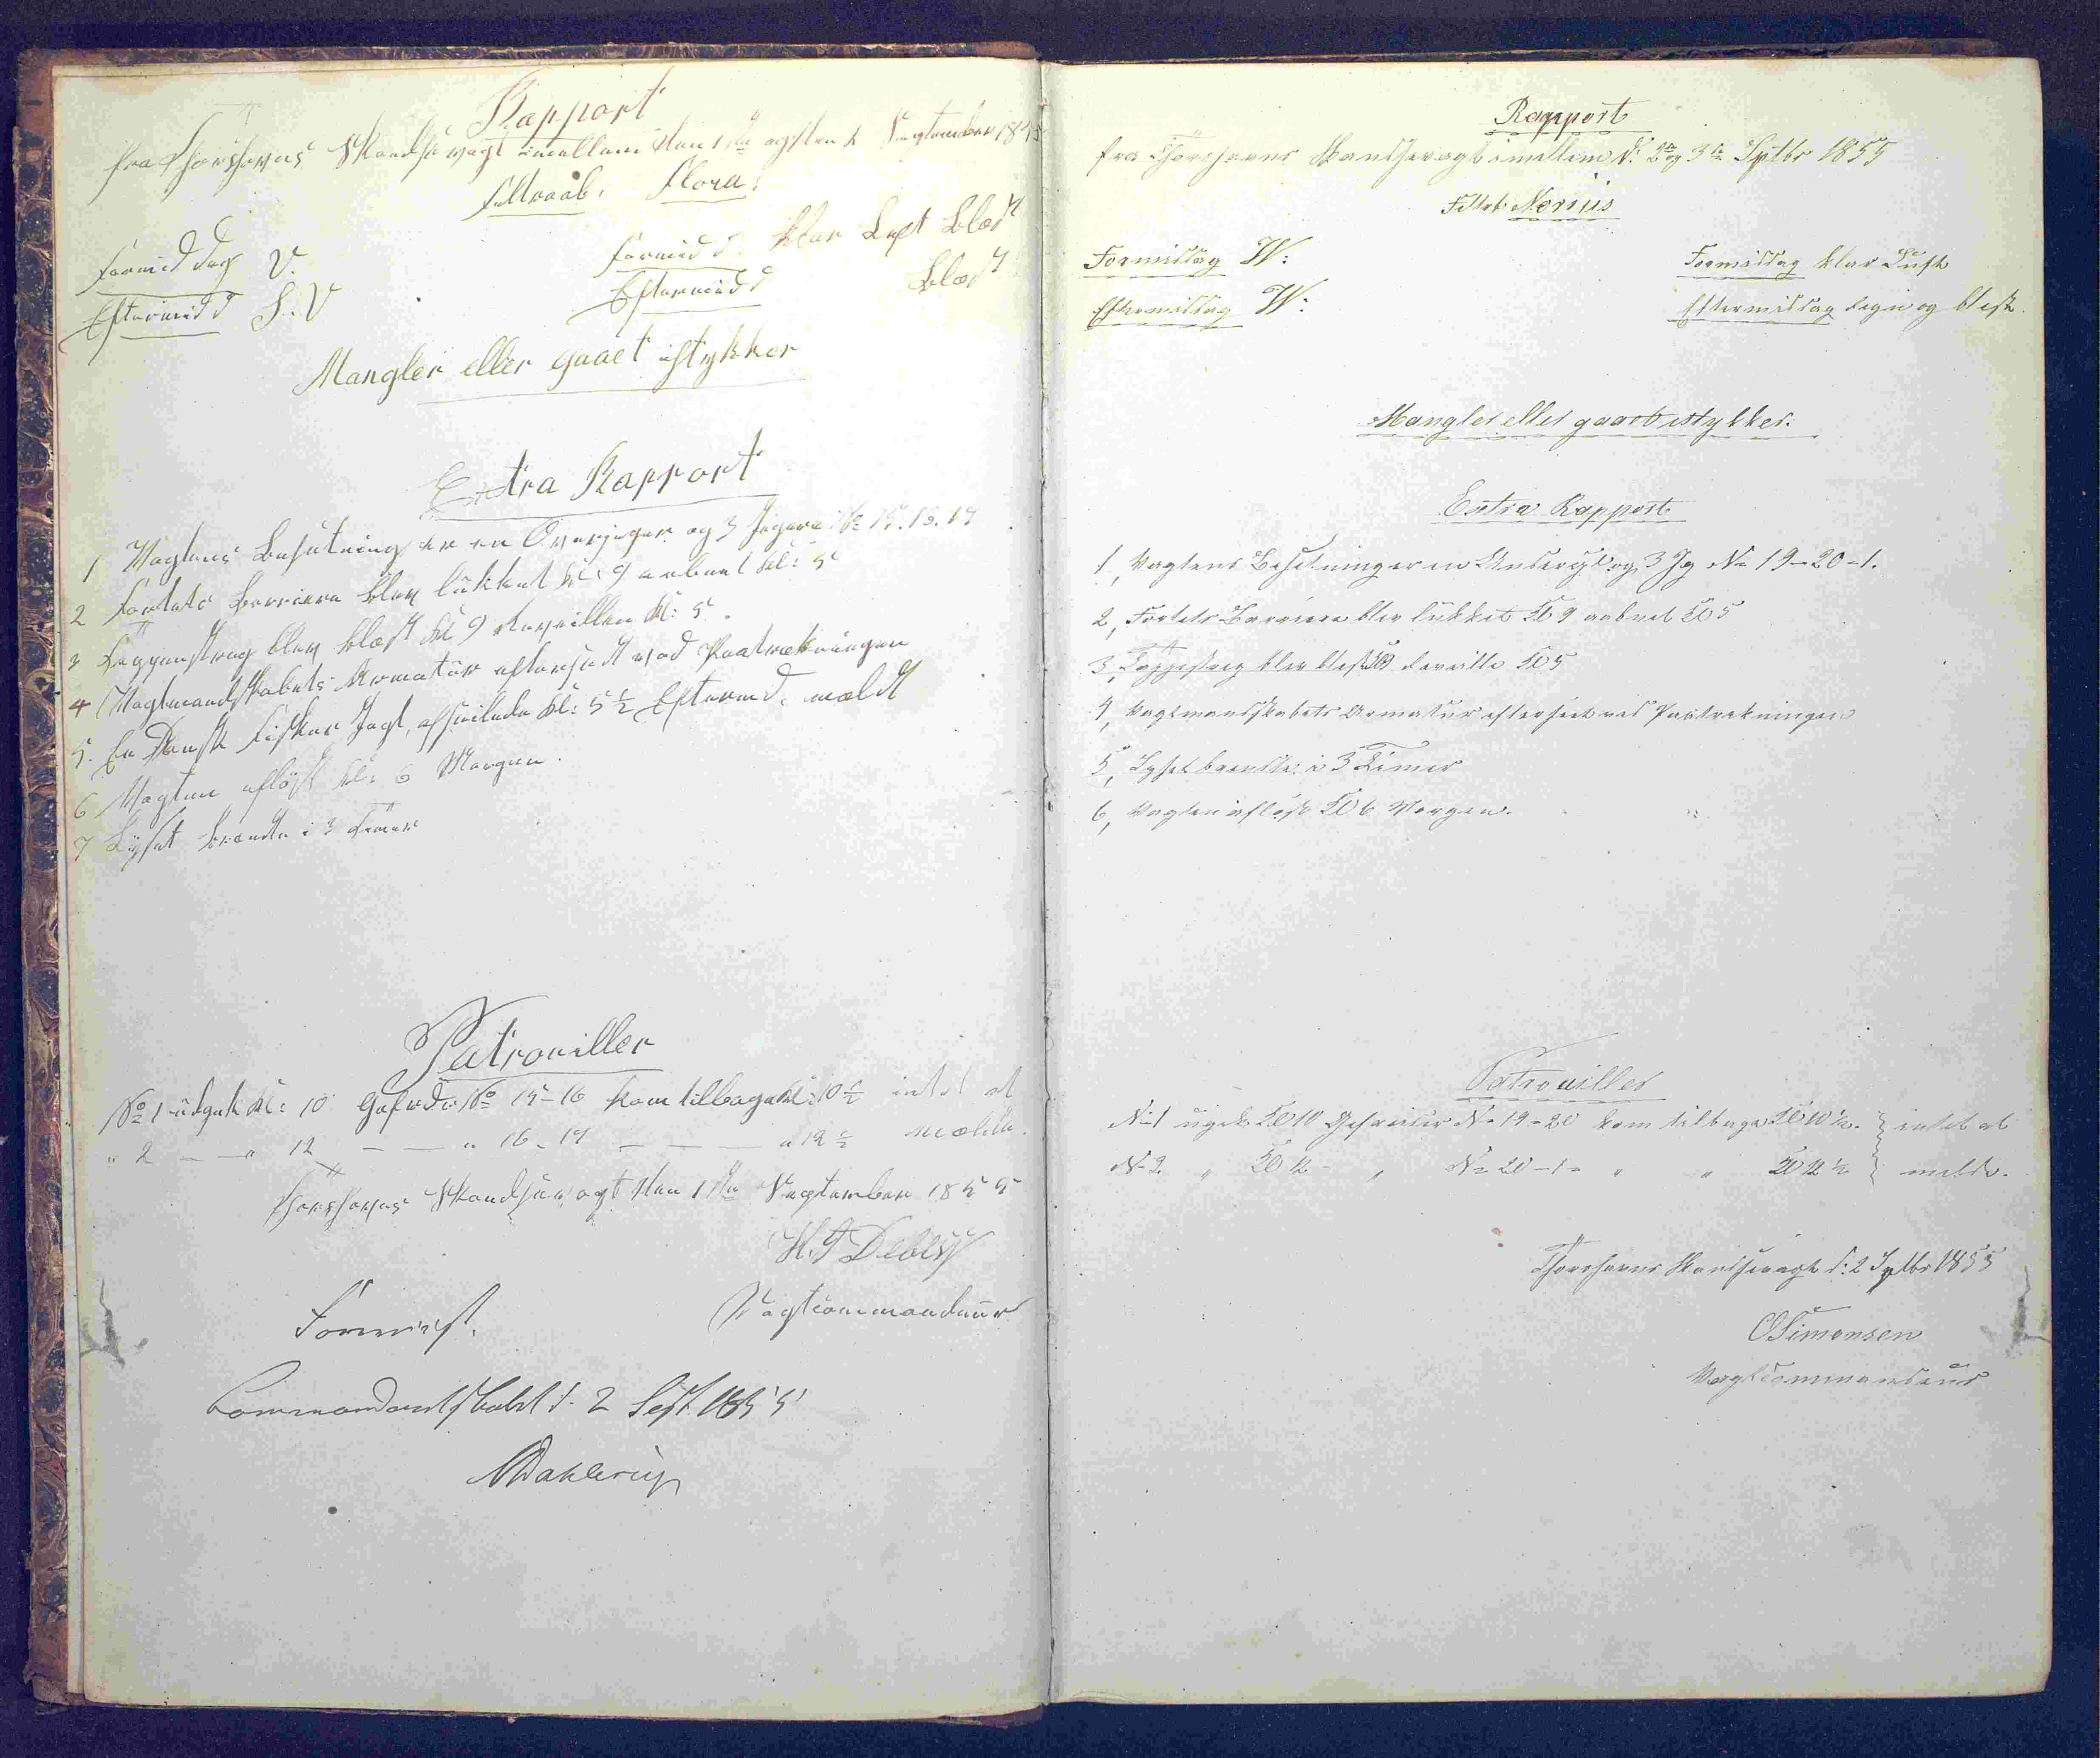 Rapport
fra Thorshavns Skandsevagt imellem den 1ste og den 2 September 1855
Feltraab. Flora.
Formiddag V. Formidd. klar Luft blæst
Eftermidd S.V Eftermidd blæst
Mangler eller gaaet istykker
Extra Rapport
1 Vagtens Besætning er en Overjæger og 3 Jægere No 15. 16. 17
2 Fortets Barriere blev lukket Kl: 9 aabnet Kl: 5
3 Tappenstreg blev blæst Kl 9 Reveillen Kl: 5.
4 Vagtmandskabets Armatur efterseet ved Paatrækningen
5. En Dansk Fisker Jagt, afseilede Kl: 5½ Eftermd. meldt
6 Vagten afløst Kl: 6 Morgen.
7 Lyset brændte i 3 Timer
Patrouiller
No 1 udgik Kl: 10 Gefreder No 15-16 kom tilbage Kl: 10½ intet at
" 2 — " 12 — — " 16-17 — — — " 12½ melde.
Thorshavns Skandsevagt den 1ste September 1855
Debes
Vagtcommandeur
Forevist.
Commandantskabet d. 2 Sept. 1855
Dahlerup
Rapport
fra Thorshavns Skandsevagt imellem d: 2den og 3die Septbr 1855
Feltrb
Formiddag W: Formiddag klar Luft
Eftermiddag W: Eftermiddag Regn og blæst.
Mangler eller gaaet istykker.
Extra Rapport
1, Vagtens Besetning er en Underof og 3 Jg No 19-20-1.
2, Fortets Barriere blev lukket Kl 9 aabnet Kl 5
3, Tappestreg blev blæst Kl 9 Reveille Kl 5
4, Vagtmandskabets Armatur efterseet ved Paatrekningen
5, Lyset brendte i 3 Timer
6, Vagten afløst Kl 6 Morgen.
Patrouiller
No 1 ugik Kl 10 Gefreider No 19-20 kom tilbage Kl 10½. intet at
No 2. " Kl 12 - " No 20-1- " " Kl 12½ melde.
Thorshavns Skandsevagt d: 2 Septbr 1855
OSimonsen
Vagtcommandeur